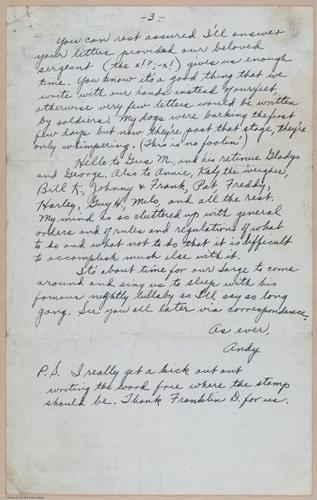 - 3 -
You can rest assured I'll answer
your letters provided our beloved
sergeant (the x!?;-x!) gives us enough
time. You know its a good thing that we
write with our hands instead of our feet
otherwise very few letters would be written
by soldiers. My dogs were barking the first
few days but now they're past that stage, they're
only whimpering. (This is no foolin')
Hello to Gus M. and his retinue Gladys
and George. Also to Annie, Katy the weigher,
Bill K., Johnny & Frank, Pat, Freddy,
Harley, Guy H. Milo, and all the rest.
My mind is so cluttered up with general
orders and of rules and regulations of what
to do and what not to do that it is difficult
to accomplish much else with it.
Its about time for our Sarge to come
around and sing us to sleep with his
famous nightly lullaby so I'll say so long
gang. See you all later via correspondence.
As ever,
Andy
P.S. I really get a kick out out
writing the word free where the stamp
should be. Thank Franklin D. for us.